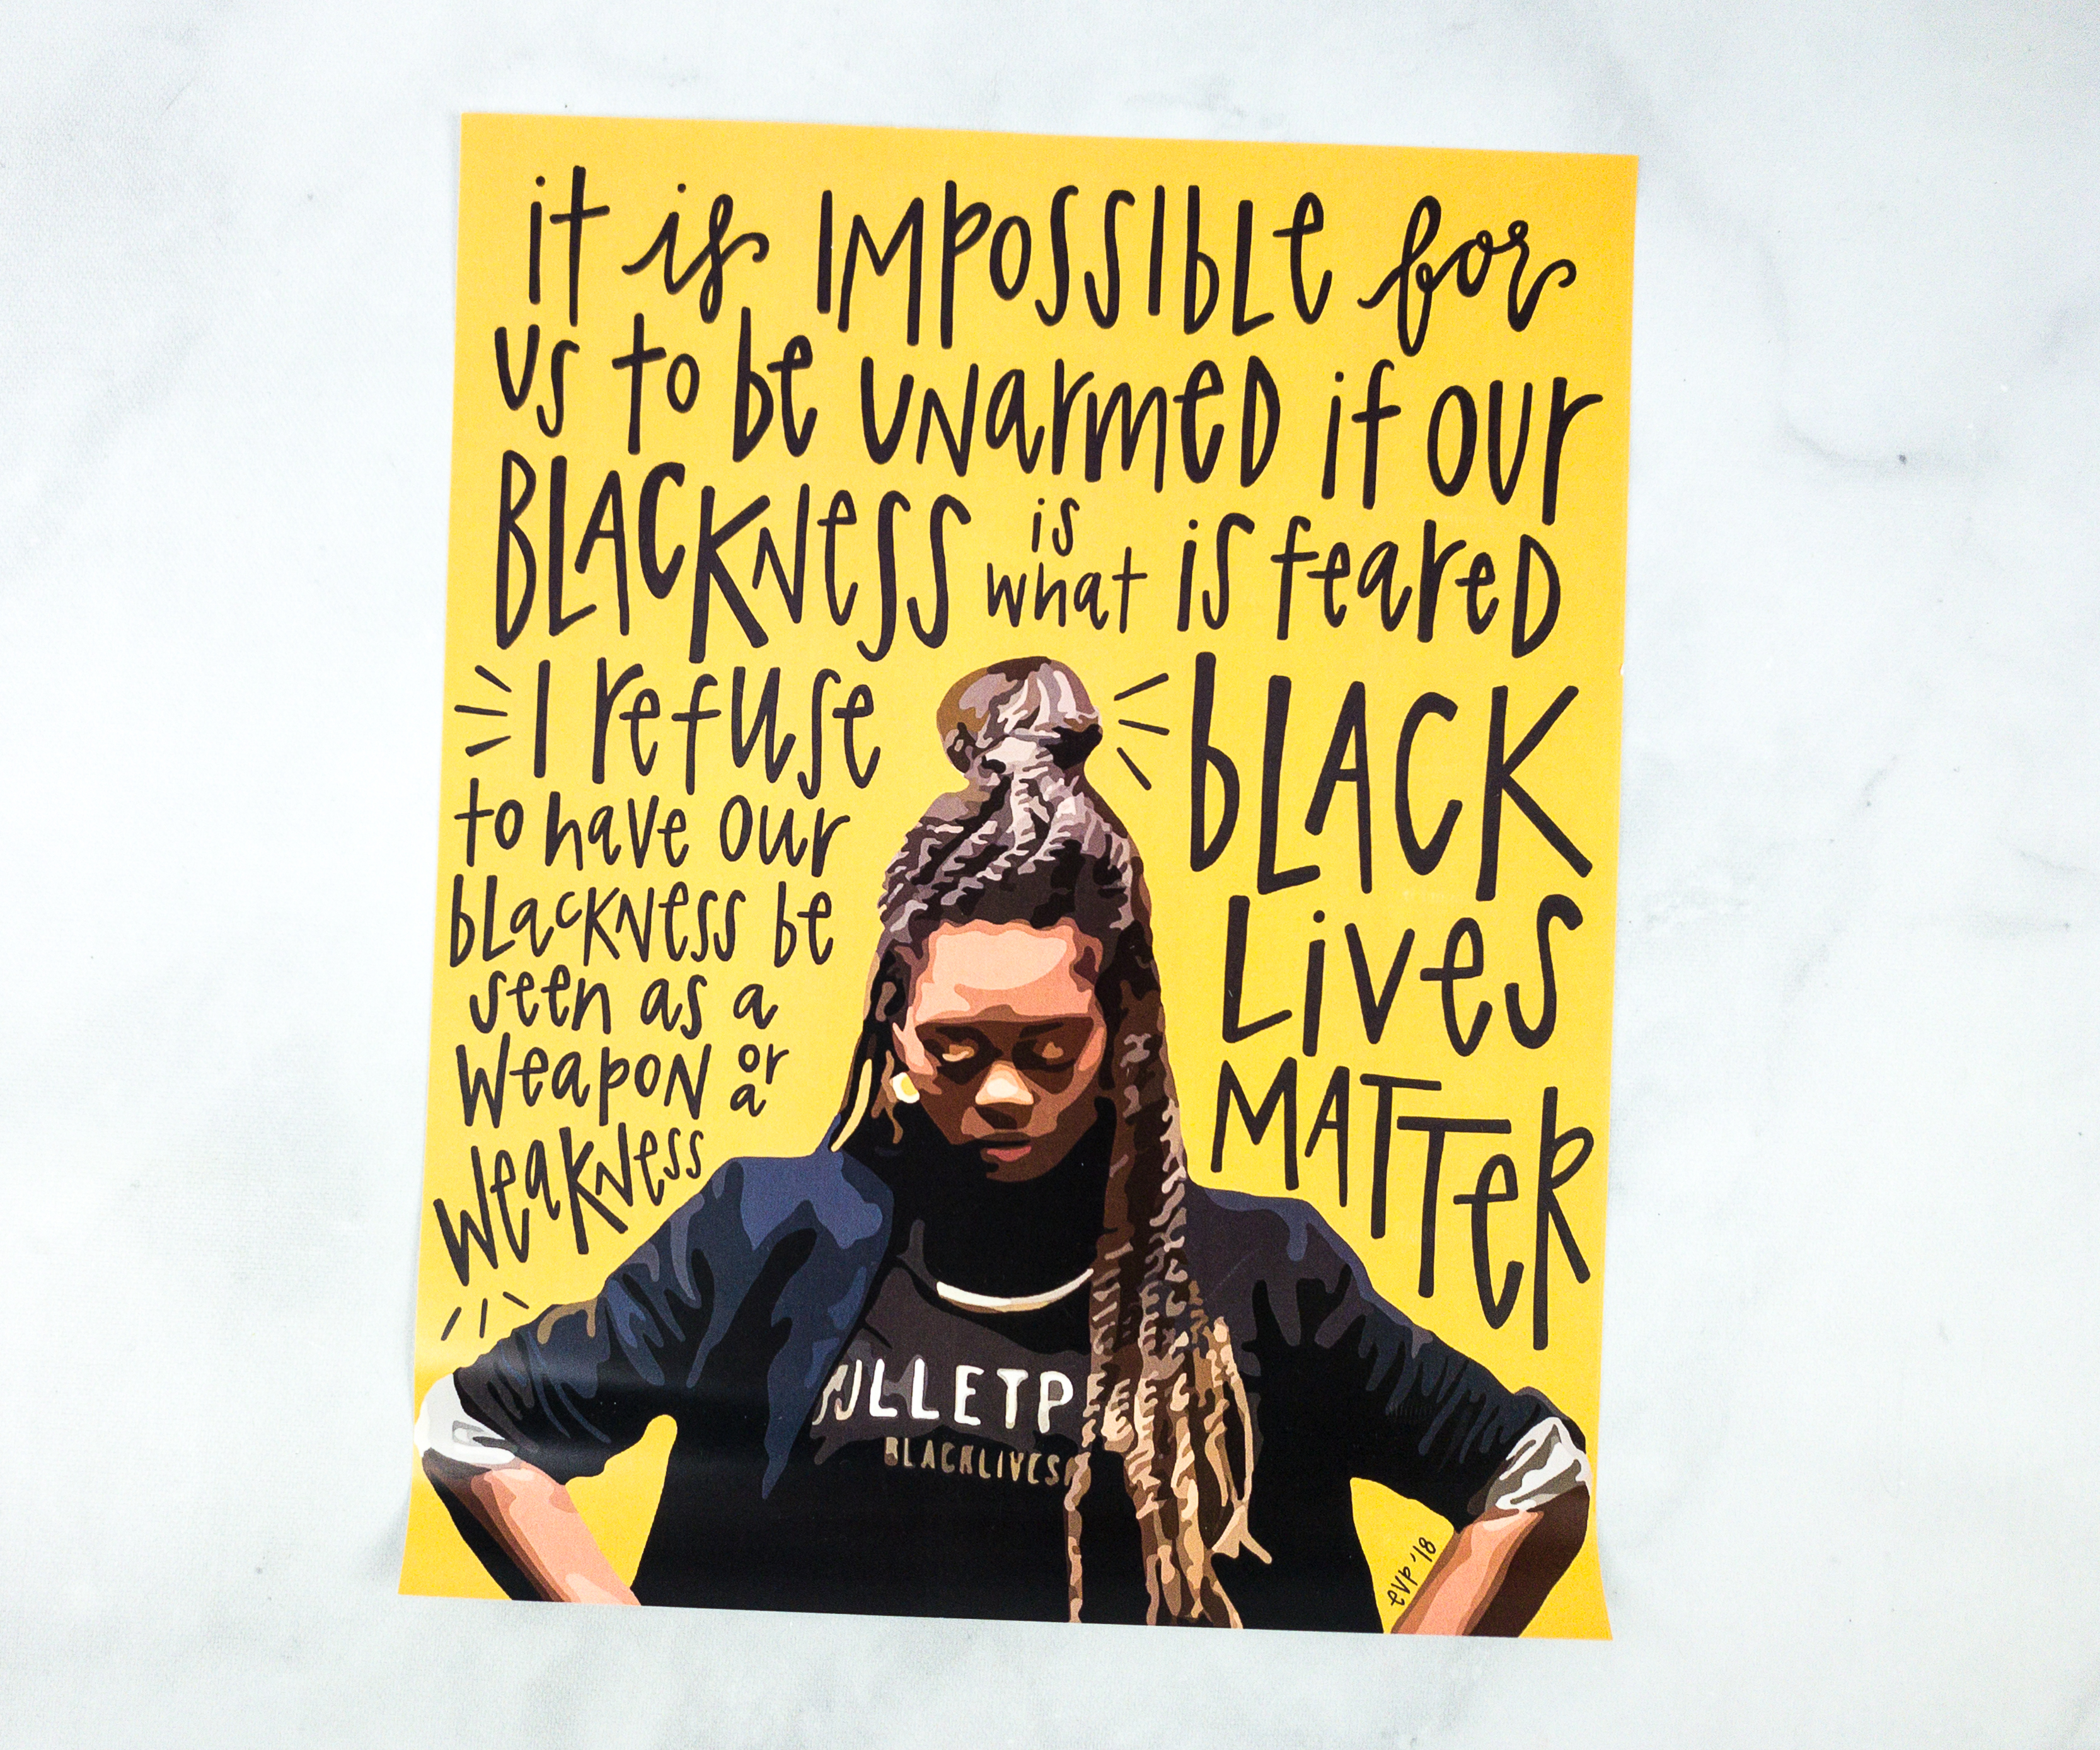 it is IMPOSSIBLE for
us to be UNarmeD if our
BLACKNess is what is feareD
I refuse
to have our
bLacKNess be
seen as a
WeapoN or a
WeaKNess
bLACK
Lives
MATTeR
ULLETP
BLACKLIVES
evp '18